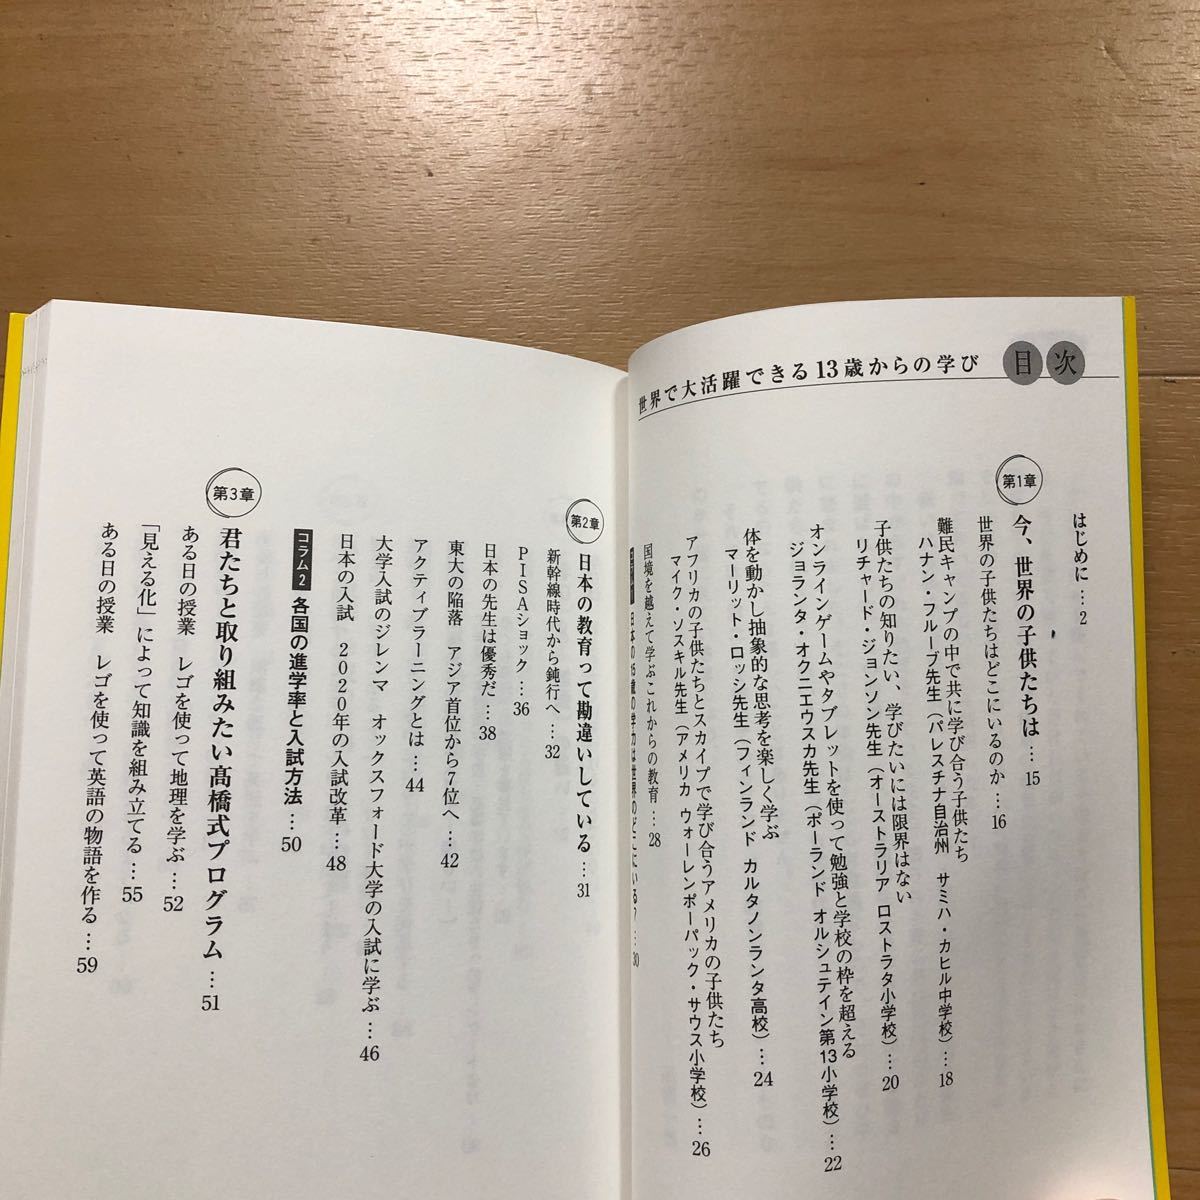 世界で大活躍できる13歳からの学び 目次
はじめに…2
第1章 今、世界の子供たちは…15
世界の子供たちはどこにいるのか…16
難民キャンプの中で共に学び合う子供たち
ハナン・フルーブ先生（パレスチナ自治州 サミハ・カヒル中学校）…18
子供たちの知りたい、学びたいには限界はない
リチャード・ジョンソン先生（オーストラリア ロストラタ小学校）…20
オンラインゲームやタブレットを使って勉強と学校の枠を超える
ジョランタ・オクニエウスカ先生（ポーランド オルシュテイン第13小学校）…22
体を動かし抽象的な思考を楽しく学ぶ
マーリット・ロッシ先生（フィンランド カルタノンランタ高校）…24
アフリカの子供たちとスカイプで学び合うアメリカの子供たち
マイク・ソスキル先生（アメリカ ウォーレンポーパック・サウス小学校）…26
国境を越えて学ぶこれからの教育…28
日本の15歳の学力は世界のどこにいる？…30
第2章 日本の教育って勘違いしている…31
新幹線時代から鈍行へ…32
PISAショック…36
日本の先生は優秀だ…38
東大の陥落 アジア首位から7位へ…42
アクティブラーニングとは…44
大学入試のジレンマ オックスフォード大学の入試に学ぶ…46
日本の入試 2020年の入試改革…48
コラム2 各国の進学率と入試方法…50
第3章 君たちと取り組みたい髙橋式プログラム…51
ある日の授業 レゴを使って地理を学ぶ…52
「見える化」によって知識を組み立てる…55
ある日の授業 レゴを使って英語の物語を作る…59